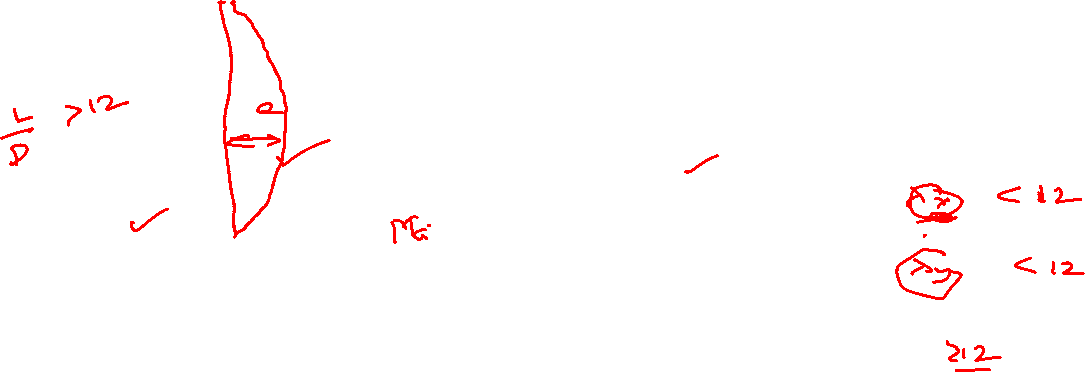 L/D >12
e
λx < 12
λy < 12
≥12